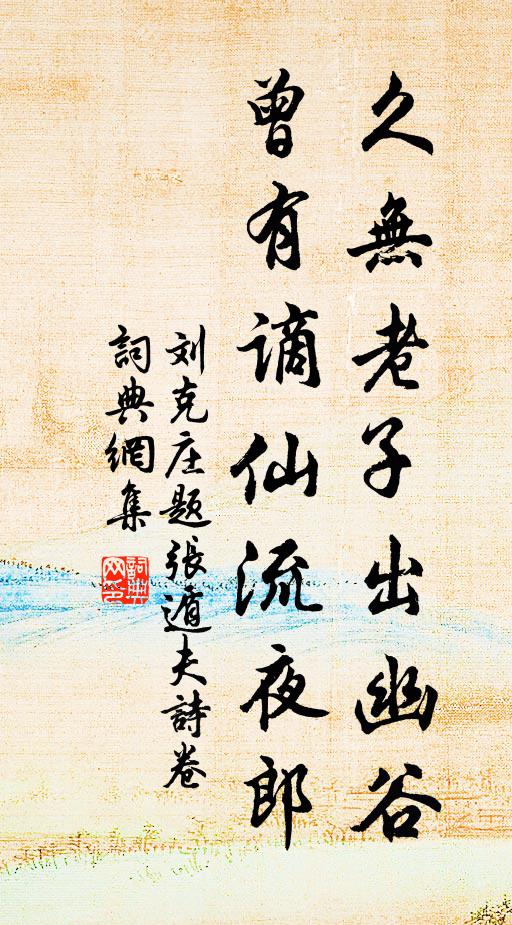 久無老子出幽谷
曾有謫仙流夜郎
刘克庄題張遁夫詩卷
詞典網集
詞典网印